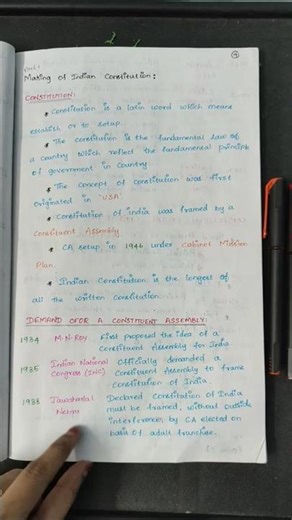 Unit-1
Making of Indian Constitution:
CONSTITUTION:
* Constitution is a latin word which means
establish or to setup.
* The constitution is the fundamental law of
a country which reflect the fundamental principle
of government in country.
* The concept of constitution was first
originated in 'USA'.
* Constitution of india was framed by a
Constituent Assembly
* CA setup in 1946 under Cabinet Mission
Plan.
* Indian Constitution is the longest of
all the written constitution.
DEMAND OFOR A CONSTITUENT ASSEMBLY:
1934 M.N.ROY First proposed the idea of a
Constituent Assembly for India
1935 Indian National Officially demanded a
Congress (INC) Constituent Assembly to frame
Constitution of India.
1938 Jawaharlal Declared Constitution of India
Nehru must be framed, without outside
interference by CA elected on
basis of adult franchise.